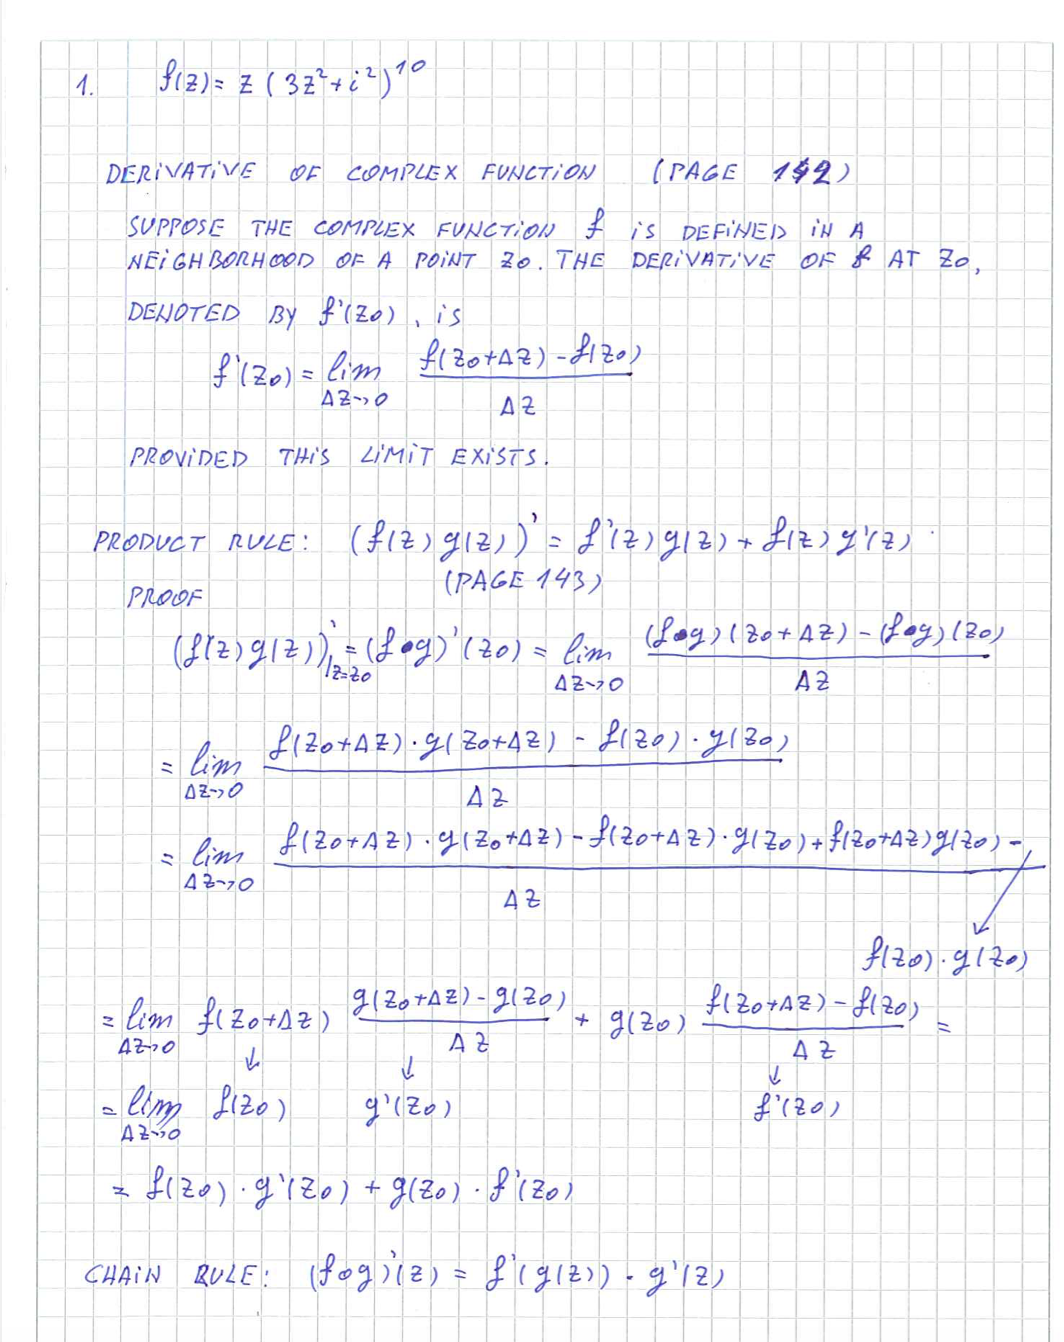 1. f(z) = z (3z²+i²)¹⁰
DERIVATIVE OF COMPLEX FUNCTION (PAGE 142)
SUPPOSE THE COMPLEX FUNCTION f IS DEFINED IN A
NEIGHBORHOOD OF A POINT z0. THE DERIVATIVE OF f AT z0,
DENOTED BY f'(z0), is
f'(z0) = lim Δz→0 (f(z0+Δz) - f(z0)) / Δz
PROVIDED THIS LIMIT EXISTS.
PRODUCT RULE: (f(z) g(z))' = f'(z) g(z) + f(z) g'(z)
(PAGE 143)
PROOF
(f(z) g(z))'|z=z0 = (f•g)'(z0) = lim Δz→0 ((f•g)(z0+Δz) - (f•g)(z0)) / Δz
= lim Δz→0 (f(z0+Δz)·g(z0+Δz) - f(z0)·g(z0)) / Δz
= lim Δz→0 (f(z0+Δz)·g(z0+Δz) - f(z0+Δz)·g(z0) + f(z0+Δz)g(z0) - / Δz
f(z0)·g(z0)
= lim Δz→0 f(z0+Δz) (g(z0+Δz) - g(z0)) / Δz + g(z0) (f(z0+Δz) - f(z0)) / Δz =
↓ ↓ ↓
= lim Δz→0 f(z0) g'(z0) f'(z0)
= f(z0)·g'(z0) + g(z0)·f'(z0)
CHAIN RULE: (f∘g)'(z) = f'(g(z))·g'(z)